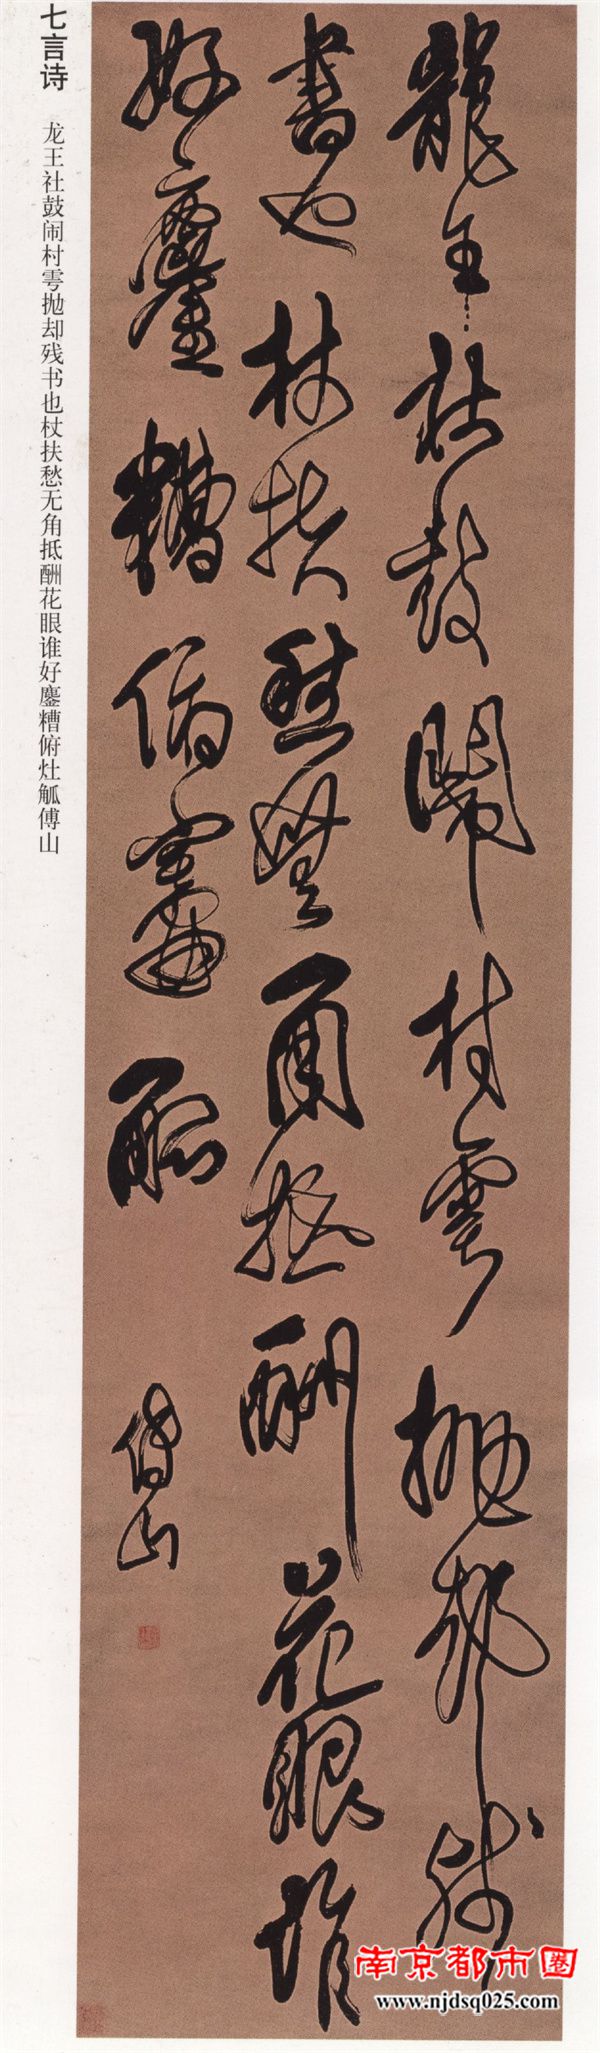 龍王社鼓鬧村雩拋却殘
書也杖扶愁無角抵酬花眼誰
好鏖糟俯竈觚
傅山
七言诗
龙王社鼓闹村雩抛却残书也杖扶愁无角抵酬花眼谁好鏖糟俯灶觚傅山
南京都市圈
www.njdsq025.com